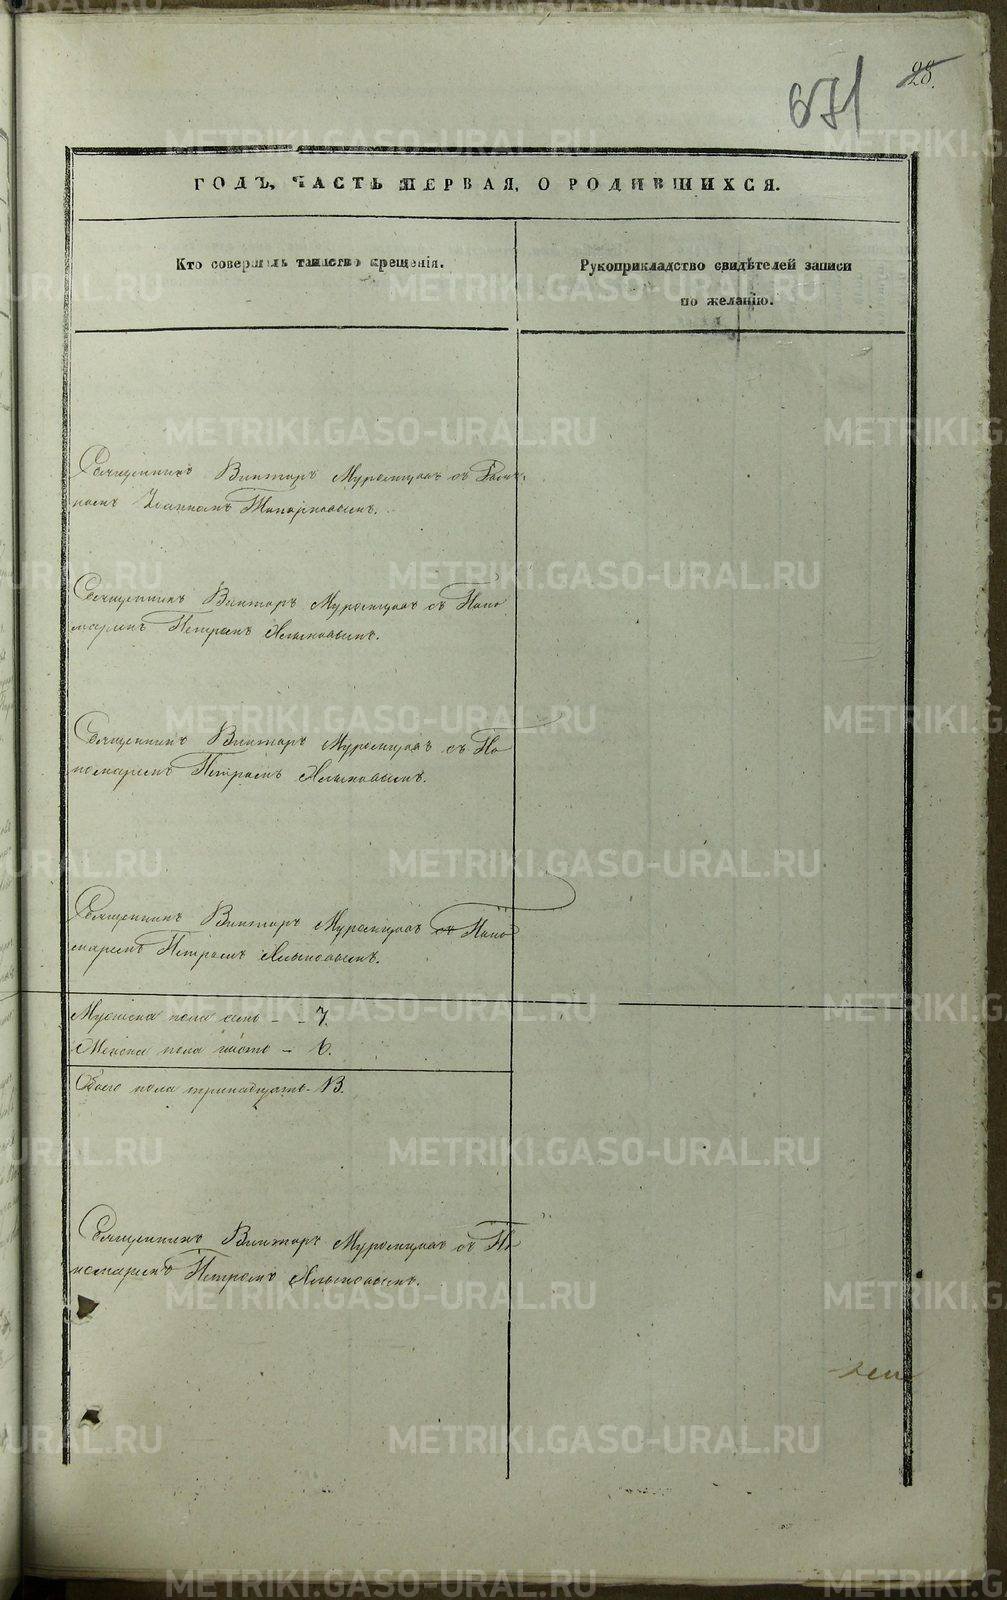 28.
671
ГОДЪ, ЧАСТЬ ПЕРВАЯ, О РОДИВШИХСЯ.
Кто совершилъ таинство крещенія.
Рукоприкладство свидѣтелей записи
по желанію.
Священникъ Викторъ Муромцовъ съ
Іоанномъ Топорковымъ.
Священникъ Викторъ Муромцовъ съ Поно
маремъ Петромъ
Священникъ Викторъ Муромцовъ съ По
номаремъ Петромъ
Священникъ Викторъ Муромцовъ съ Поно
маремъ Петромъ
Мужска пола семь - - 7.
Женска пола шесть - 6.
Обоего пола тринадцать - 13.
Священникъ Викторъ Муромцовъ съ По
номаремъ Петромъ
METRIKI.GASO-URAL.RU